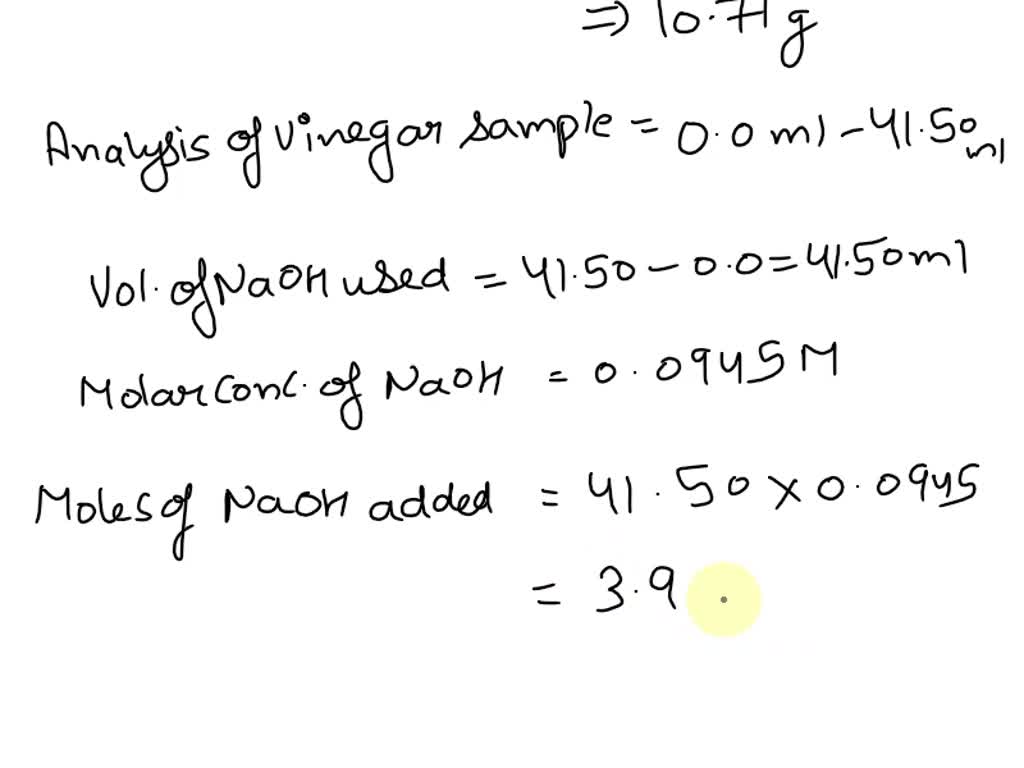 ⇒ 10.71 g
Analysis of Vinegar sample = 0.0 ml - 41.50 ml
Vol. of NaOH used = 41.50 - 0.0 = 41.50 ml
Molar Conc. of NaOH = 0.0945 M
Moles of NaOH added = 41.50 x 0.0945
= 3.9